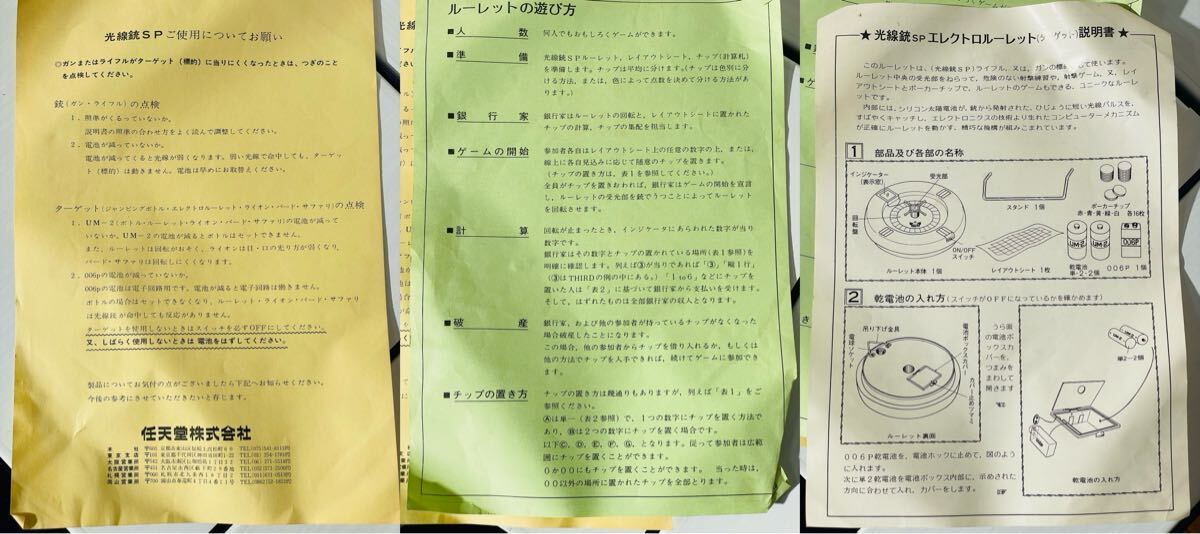 光線銃SPご使用についてお願い
◎ガンまたはライフルがターゲット（標的）に当りにくくなったときは、つぎのこと
を点検してください。
銃（ガン・ライフル）の点検
1．照準がくるっていないか。
説明書の照準の合わせ方をよく読んで調整してください。
2．電池が減っていないか。
電池が減ってくると光線が弱くなります。弱い光線で命中しても、ターゲッ
ト（標的）は動きません。電池は早めにお取替えください。
ターゲット（ジャンピングボトル・エレクトロルーレット・ライオン・バード・サファリ）の点検
1．UM-2（ボトル・ルーレット・ライオン・バード・サファリ）の電池が減って
いないか。UM-2の電池が減るとボトルはセットできません。
また、ルーレットは回転がおそく、ライオンは目・口の光り方が弱くなり、
バード・サファリは回転しにくくなります。
2．006pの電池が減っていないか。
006pの電池は電子回路用です。電池が減ると電子回路は働きません。
ボトルの場合はセットできなくなり、ルーレット・ライオン・バード・サファリ
は光線銃が命中しても反応がありません。
ターゲットを使用しないときはスイッチを必ずOFFにしてください。
又、しばらく使用しないときは 電池をはずしてください。
製品についてお気付の点がございましたら下記へお知らせください。
今後の参考にさせていただきたいと存じます。
任天堂株式会社
本社
東京支店
大阪営業所
名古屋営業所
札幌営業所
岡山営業所
ルーレットの遊び方
■人数 何人でもおもしろくゲームができます。
■準備 光線銃SPルーレット、レイアウトシート、チップ（計算札）
を準備します。チップは平均に分けます。（チップは色別に分け
る方法、または、色によって点数を決めて分ける方法があ
ります。）
■銀行家 銀行家はルーレットの回転と、レイアウトシートに置かれた
チップの計算、チップの集配を担当します。
■ゲームの開始 参加者各自はレイアウトシート上の任意の数字の上、または、
線上に各自見込みに応じて随意のチップを置きます。
（チップの置き方は、表1を参照してください。）
全員がチップを置きおわれば、銀行家はゲームの開始を宣言
し、ルーレットの受光部を銃でうつことによってルーレット
を回転させます。
■計算 回転が止まったとき、インジケータにあらわれた数字が当り
数字です。
銀行家はその数字とチップの置かれている場所（表1参照）を
明確に確認します。例えば③が当りであれば「③」「縦1行」
（③はTHIRDの例の中にある。）「1to6」などにチップを
置いた人は「表2」に基づいて銀行家から支払いを受けます。
そして、はずれたものは全部銀行家の収入となります。
■破産 銀行家、および他の参加者が持っているチップがなくなった
場合破産したことになります。
この場合、他の参加者からチップを借り入れるか、もしくは
他の方法でチップを入手できれば、続けてゲームに参加でき
ます。
■チップの置き方 チップの置き方は幾通りもありますが、例えば「表1」をご
参照ください。
Ⓐは単一（表2参照）で、1つの数字にチップを置く方法で
あり、Ⓑは2つの数字にチップを置く場合です。
以下Ⓒ、Ⓓ、Ⓔ、Ⓕ、Ⓖ、となります。従って参加者は広範
囲にチップを置くことができます。
0か00にもチップを置くことができます。 当った時は、
00以外の場所に置かれたチップを全部とります。
★光線銃SPエレクトロルーレット(ターゲット)説明書★
このルーレットは、(光線銃SP)ライフル、又は、ガンの標的として使います。
ルーレット中央の受光部をねらって、危険のない射撃練習や、射撃ゲーム、又、レイ
アウトシートとポーカーチップで、ルーレットのゲームもできる、ユニークなルーレ
ットです。
内部には、シリコン太陽電池が、銃から発射された、ひじょうに短い光線パルスを、
すばやくキャッチし、エレクトロニクスの技術より生れたコンピューターメカニズム
が正確にルーレットを動かす、精巧な機構が組みこまれています。
1 部品及び各部の名称
インジケーター
(表示窓)
受光部
回転盤
ON/OFF
スイッチ
ルーレット本体 1個
スタンド 1個
レイアウトシート 1枚
ポーカーチップ
赤・青・黄・緑・白 各16枚
UM-2
UM-2
006P
乾電池
単-2-2個
006P 1個
2 乾電池の入れ方(スイッチがOFFになっているかを確かめます)
吊り下げ金具
電球ソケット
電池ボックスカバー
カバー止めツマミ
ルーレット裏面
うら面
の電池ボ
ックスカ
バーを、
つまみを
まわして
開きます
単2-2個
006P乾電池を、電池ホックに止めて、図のよう
に入れます。
次に単2乾電池を電池ボックス内部に、示めされた
方向に合わせて入れ、カバーをします。
乾電池の入れ方